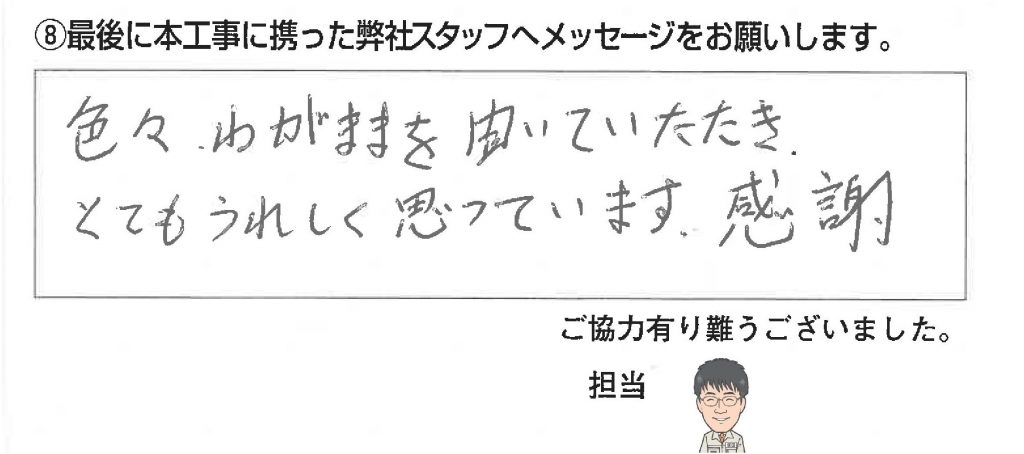 ⑧最後に本工事に携った弊社スタッフへメッセージをお願いします。
色々、わがままを聞いていただき、
とてもうれしく思っています。感謝
ご協力有り難うございました。
担当